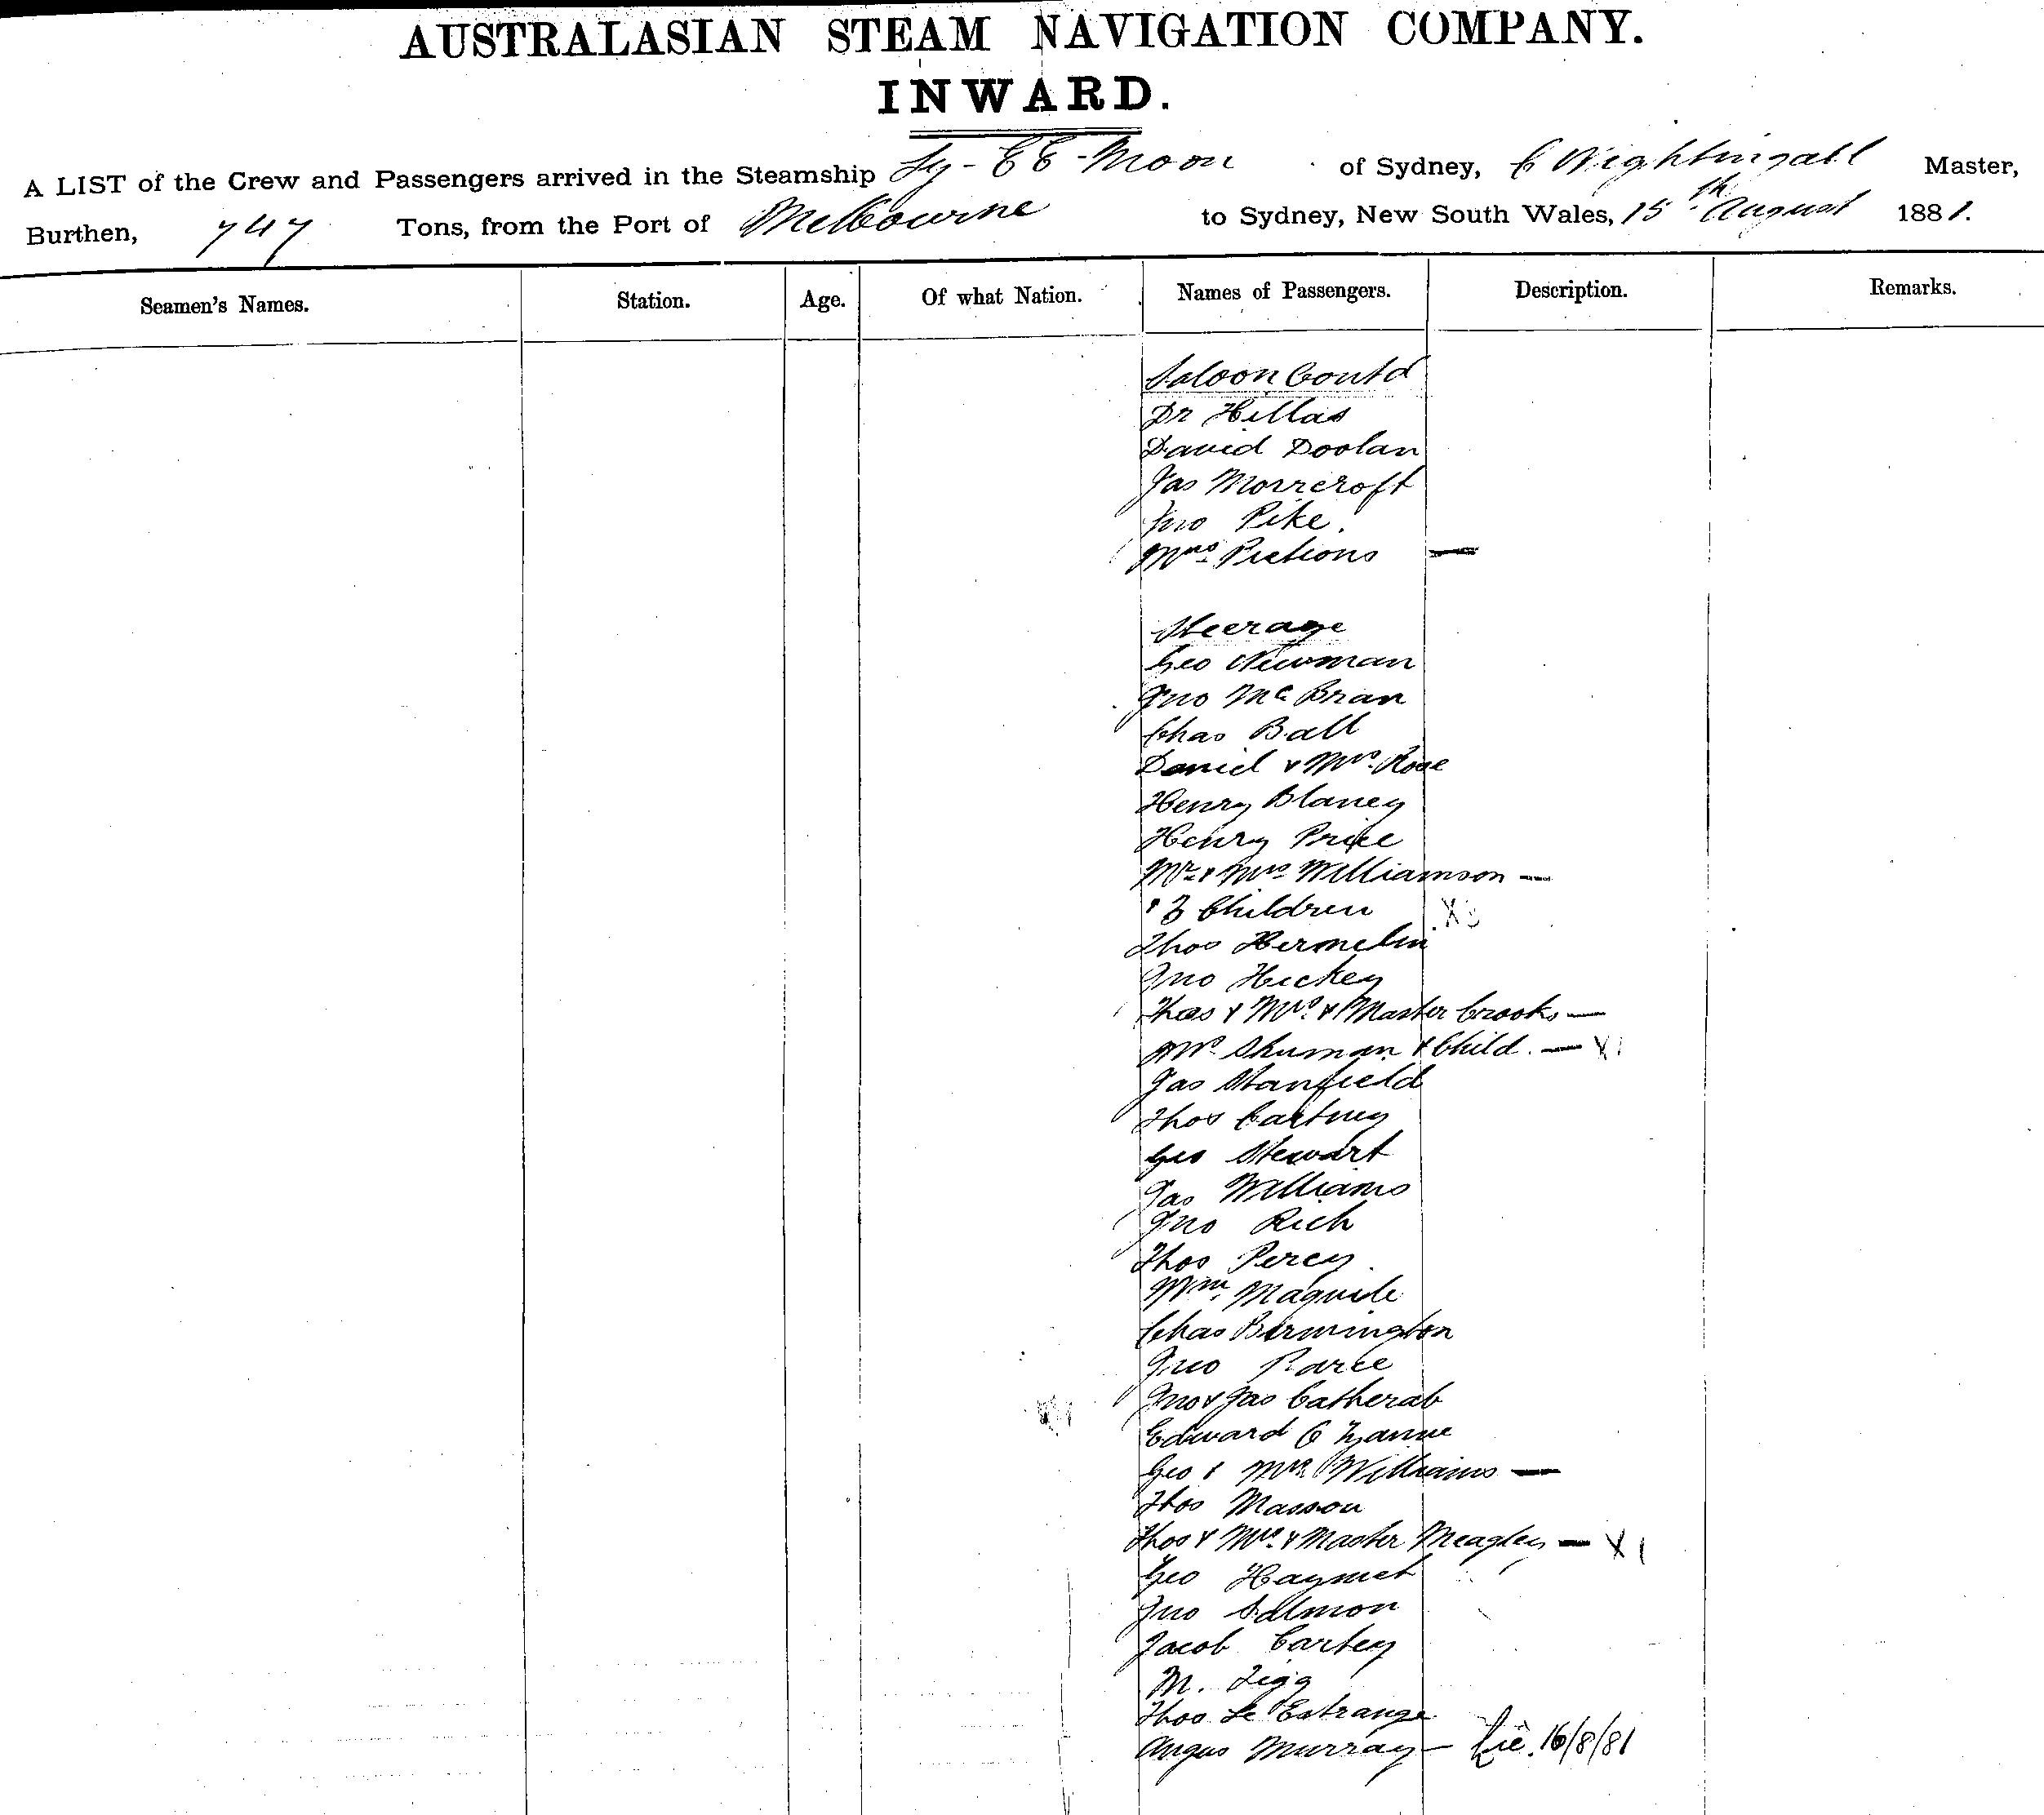 AUSTRALASIAN STEAM NAVIGATION COMPANY.
INWARD.
A LIST of the Crew and Passengers arrived in the Steamship Ly-EE-Moon of Sydney, C Nightingall Master,
Burthen, 747 Tons, from the Port of Melbourne to Sydney, New South Wales, 15th August 1881.
Seamen's Names. Station. Age. Of what Nation. Names of Passengers. Description. Remarks.
Saloon Contd
Dr Hillas
David Doolan
Jas Morrcroft
Jno Pike.
Mrs Pictions —
Steerage
Geo Newman
Jno Mc Bran
Chas Ball
Daniel & Mrs. Rose
Henry Blaney
Henry Price
Mr & Mrs Williamson —
" 3 Children X3
Thos Hermelin
Jno Hickey
Thos & Mrs. & Master Crooks —
Mrs. Shuman & Child. — X1
Jas Stanfield
Thos Cartney
Geo Stewart
Jas Williams
Jno Rich
Thos Percy
Wm. Maguile
Chas Birmington
Jno Parce
Jno & Jas Catherab
Edward O
Geo & Mrs Williams —
Thos Masson
Thos & Mrs. & Master Meagley — X1
Geo Haymet
Jno Salmon
Jacob Cartey
M. Figg
Thos Le Estrange
Angus Murray — 16/8/81